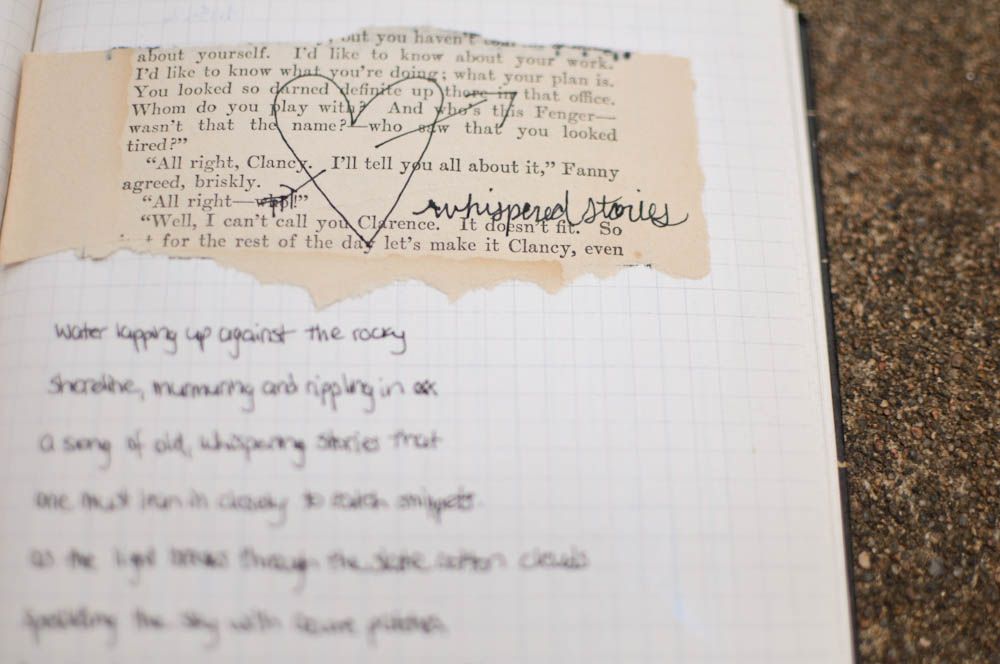 but you haven't
about yourself. I'd like to know about your work.
I'd like to know what you're doing; what your plan is.
You looked so darned definite up there in that office.
Whom do you play with? And who's this Fenger—
wasn't that the name?—who saw that you looked
tired?"
"All right, Clancy. I'll tell you all about it," Fanny
agreed, briskly.
"All right—who!"
"Well, I can't call you Clarence. It doesn't fit. So
for the rest of the day let's make it Clancy, even
whispered stories
Water lapping up against the rocky
shoreline, murmuring and rippling in
a song of old, whispering stories that
one must lean in closely to catch snippets
as the light breaks through the cotton clouds
speckling the sky with azure patches